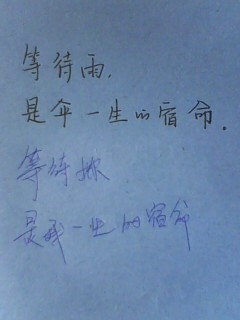 等待雨.
是伞一生的宿命.
等待你
是我一生的宿命